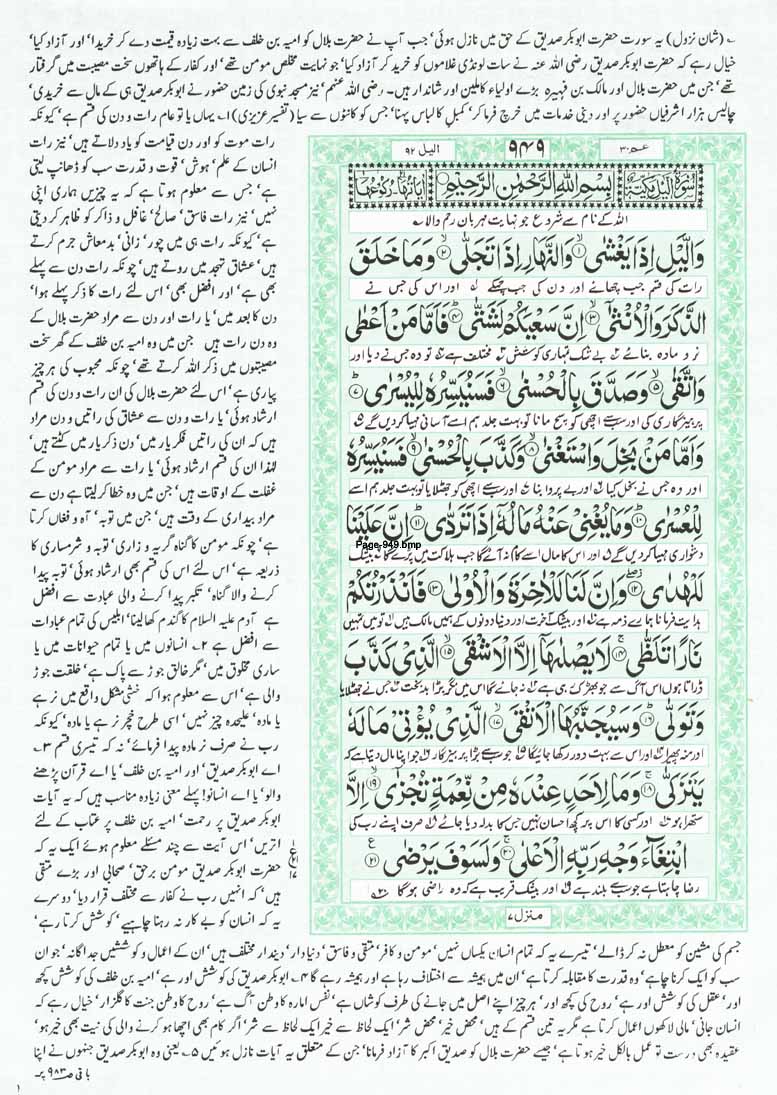 ؎ (شان نزول) یہ سورت حضرت ابوبکر صدیق کے حق میں نازل ہوئی' جب آپ نے حضرت بلال کو امیہ بن خلف سے بہت زیادہ قیمت دے کر خریدا' اور آزاد کیا'
خیال رہے کہ حضرت ابوبکر صدیق رضی اللہ عنہ نے سات لونڈی غلاموں کو خرید کر آزاد کیا' جو نہایت مخلص مومن تھے' اور کفار کے ہاتھوں سخت مصیبت میں گرفتار
تھے' جن میں حضرت بلال اور مالک بن فہیرہ بڑے اولیاء کاملین اور شاندار ہیں۔ رضی اللہ عنہم' نیز مسجد نبوی کی زمین حضور نے ابوبکر صدیق ہی کے مال سے خریدی'
چالیس ہزار اشرفیاں حضور پر اور دینی خدمات میں خرچ فرما کر' کمبل کا لباس پہنا' جس کو کانٹوں سے سیا (تفسیر عزیزی) ۱؎ یہاں یا تو عام رات و دن کی قسم ہے' کیونکہ
عمّ ۳۰
۹۴۹
الیل ۹۲
بِسْمِ اللهِ الرَّحْمٰنِ الرَّحِيْمِ
اللہ کے نام سے شروع جو نہایت مہربان رحم والا
وَالَّيْلِ اِذَا يَغْشٰى ۙ﴿۱﴾ وَالنَّهَارِ اِذَا تَجَلّٰى ۙ﴿۲﴾ وَمَا خَلَقَ
رات کی قسم جب چھائے اور دن کی جب چمکے اور اس کی جس نے
الذَّكَرَ وَالْاُنْثٰٓى ۙ﴿۳﴾ اِنَّ سَعْيَكُمْ لَشَتّٰى ؕ﴿۴﴾ فَاَمَّا مَنْ اَعْطٰى
نر و مادہ بنائے بے شک تمہاری کوشش مختلف ہے تو وہ جس نے دیا اور
وَاتَّقٰى ۙ﴿۵﴾ وَصَدَّقَ بِالْحُسْنٰى ۙ﴿۶﴾ فَسَنُيَسِّرُهٗ لِلْيُسْرٰى ؕ﴿۷﴾
پرہیزگاری کی اور سب سے اچھی کو سچ مانا تو بہت جلد ہم اسے آسانی مہیا کر دیں گے
وَاَمَّا مَنْۢ بَخِلَ وَاسْتَغْنٰى ۙ﴿۸﴾ وَكَذَّبَ بِالْحُسْنٰى ۙ﴿۹﴾ فَسَنُيَسِّرُهٗ
اور وہ جس نے بخل کیا اور بے پرواہ بنا اور سب سے اچھی کو جھٹلایا تو بہت جلد ہم اسے
لِلْعُسْرٰى ؕ﴿۱۰﴾ وَمَا يُغْنِيْ عَنْهُ مَالُهٗٓ اِذَا تَرَدّٰى ؕ﴿۱۱﴾ اِنَّ عَلَيْنَا
Page-949.bmp
دشواری مہیا کر دیں گے اور اس کا مال اسے کام نہ آئے گا جب ہلاکت میں پڑے گا بیشک
لَلْهُدٰى ۖ﴿۱۲﴾ وَاِنَّ لَنَا لَلْاٰخِرَةَ وَالْاُوْلٰى ﴿۱۳﴾ فَاَنْذَرْتُكُمْ
ہدایت فرمانا ہمارے ذمہ ہے اور بیشک آخرت اور دنیا دونوں کے ہمیں مالک ہیں تو میں تمہیں
نَارًا تَلَظّٰى ۚ﴿۱۴﴾ لَا يَصْلٰىهَآ اِلَّا الْاَشْقَى ۙ﴿۱۵﴾ الَّذِيْ كَذَّبَ
ڈراتا ہوں اس آگ سے جو بھڑک رہی ہے نہ جائے گا اس میں مگر بڑا بدبخت جس نے جھٹلایا
وَتَوَلّٰى ؕ﴿۱۶﴾ وَسَيُجَنَّبُهَا الْاَتْقَى ۙ﴿۱۷﴾ الَّذِيْ يُؤْتِيْ مَالَهٗ
اور منہ پھیرا اور اس سے بہت دور رکھا جائیگا جو سب سے بڑا پرہیزگار جو اپنا مال دیتا ہے کہ
يَتَزَكّٰى ۚ﴿۱۸﴾ وَمَا لِاَحَدٍ عِنْدَهٗ مِنْ نِّعْمَةٍ تُجْزٰٓى ۙ﴿۱۹﴾ اِلَّا
ستھرا ہو اور کسی کا اس پر کچھ احسان نہیں جس کا بدلہ دیا جائے صرف اپنے رب کی
ابْتِغَآءَ وَجْهِ رَبِّهِ الْاَعْلٰى ۚ﴿۲۰﴾ وَلَسَوْفَ يَرْضٰى ﴿۲۱﴾
رضا چاہتا ہے جو سب سے بلند ہے اور بیشک قریب ہے کہ وہ راضی ہو گا
منزل ۷
رات موت کو اور دن قیامت کو یاد دلاتے ہیں' نیز رات
انسان کے علم' ہوش' قوت و قدرت سب کو ڈھانپ لیتی
ہے' جس سے معلوم ہوتا ہے کہ یہ چیزیں ہماری اپنی
نہیں' نیز رات فاسق' صالح' غافل و ذاکر کو ظاہر کر دیتی
ہے' کیونکہ رات ہی میں چور' زانی' بدمعاش جرم کرتے
ہیں' عشاق تہجد میں روتے ہیں' چونکہ رات دن سے پہلے
بھی ہے' اور افضل بھی' اس لئے رات کا ذکر پہلے ہوا'
دن کا بعد میں' یا رات اور دن سے مراد حضرت بلال کے
وہ دن رات ہیں جن میں وہ امیہ بن خلف کے گھر سخت
مصیبتوں میں ذکر اللہ کرتے تھے' چونکہ محبوب کی ہر چیز
پیاری ہے' اس لئے حضرت بلال کی ان رات و دن کی قسم
ارشاد ہوئی' یا رات و دن سے عشاق کی راتیں و دن مراد
ہیں کہ ان کی راتیں فکر یار میں' دن ذکر یار میں کٹتے ہیں'
لہٰذا ان کی قسم ارشاد ہوئی' یا رات سے مراد مومن کے
غفلت کے اوقات ہیں' جن میں وہ خطا کر لیتا ہے دن سے
مراد بیداری کے وقت ہیں' جن میں توبہ' آہ و فغاں کرتا
ہے' چونکہ مومن کا گناہ گریہ و زاری' توبہ و شرمساری کا
ذریعہ ہے' اس لئے اس کی قسم بھی ارشاد ہوئی' توبہ پیدا
کرنے والا گناہ' تکبر پیدا کرنے والی عبادت سے افضل
ہے آدم علیہ السلام کا گندم کھا لینا' ابلیس کی تمام عبادات
سے افضل ہے ۲؎ انسانوں میں یا تمام حیوانات میں یا
ساری مخلوق میں' مگر خالق جوڑ سے پاک ہے' خلقت جوڑ
والی ہے' اس سے معلوم ہوا کہ خنثیٰ مشکل واقع میں نر ہے
یا مادہ' علیحدہ چیز نہیں' اسی طرح خچر نر ہے یا مادہ' کیونکہ
رب نے صرف نر مادہ پیدا فرمائے' نہ کہ تیسری قسم ۳؎
اے ابوبکر صدیق' اور امیہ بن خلف' یا اے قرآن پڑھنے
والو' یا اے انسانو! پہلے معنی زیادہ مناسب ہیں' کہ یہ آیات
ابوبکر صدیق پر رحمت' امیہ بن خلف پر عتاب کے لئے
اتریں' اس آیت سے چند مسئلے معلوم ہوئے ایک یہ کہ
حضرت ابوبکر صدیق مومن برحق' صحابی اور بڑے متقی
ہیں' کہ انہیں رب نے کفار سے مختلف قرار دیا' دوسرے
یہ کہ انسان کو بے کار نہ رہنا چاہیے' کوشش کرتا رہے'
جسم کی مشین کو معطل نہ کر ڈالے' تیسرے یہ کہ تمام انسان یکساں نہیں' مومن و کافر' متقی و فاسق' دنیا دار' دیندار مختلف ہیں' ان کے اعمال و کوششیں جداگانہ' جو ان
سب کو ایک کرنا چاہے' وہ قدرت کا مقابلہ کرتا ہے' ان میں ہمیشہ سے اختلاف رہا ہے اور ہمیشہ رہے گا ۴؎ ابوبکر صدیق کی کوشش اور ہے' امیہ بن خلف کی کوشش کچھ
اور' عقل کی کوشش اور ہے' روح کی کچھ اور' ہر چیز اپنے اصل میں جانے کی طرف کوشاں ہے' نفس امارہ کا وطن آگ ہے' روح کا وطن جنت کا گلزار' خیال رہے کہ
انسان جانی' مالی لاکھوں اعمال کرتا ہے مگر یہ تین قسم کے ہیں' محض خیر' محض شر' ایک لحاظ سے خیر ایک لحاظ سے شر' اگر کام بھی اچھا ہو کرنے والی کی نیت بھی خیر ہو'
عقیدہ بھی درست تو عمل بالکل خیر ہوتا ہے' جیسے حضرت بلال کو صدیق اکبر کا آزاد فرمانا' جن کے متعلق یہ آیات نازل ہوئیں ۵؎ یعنی وہ ابوبکر صدیق جنہوں نے اپنا
باقی ص ۹۸۳ پر